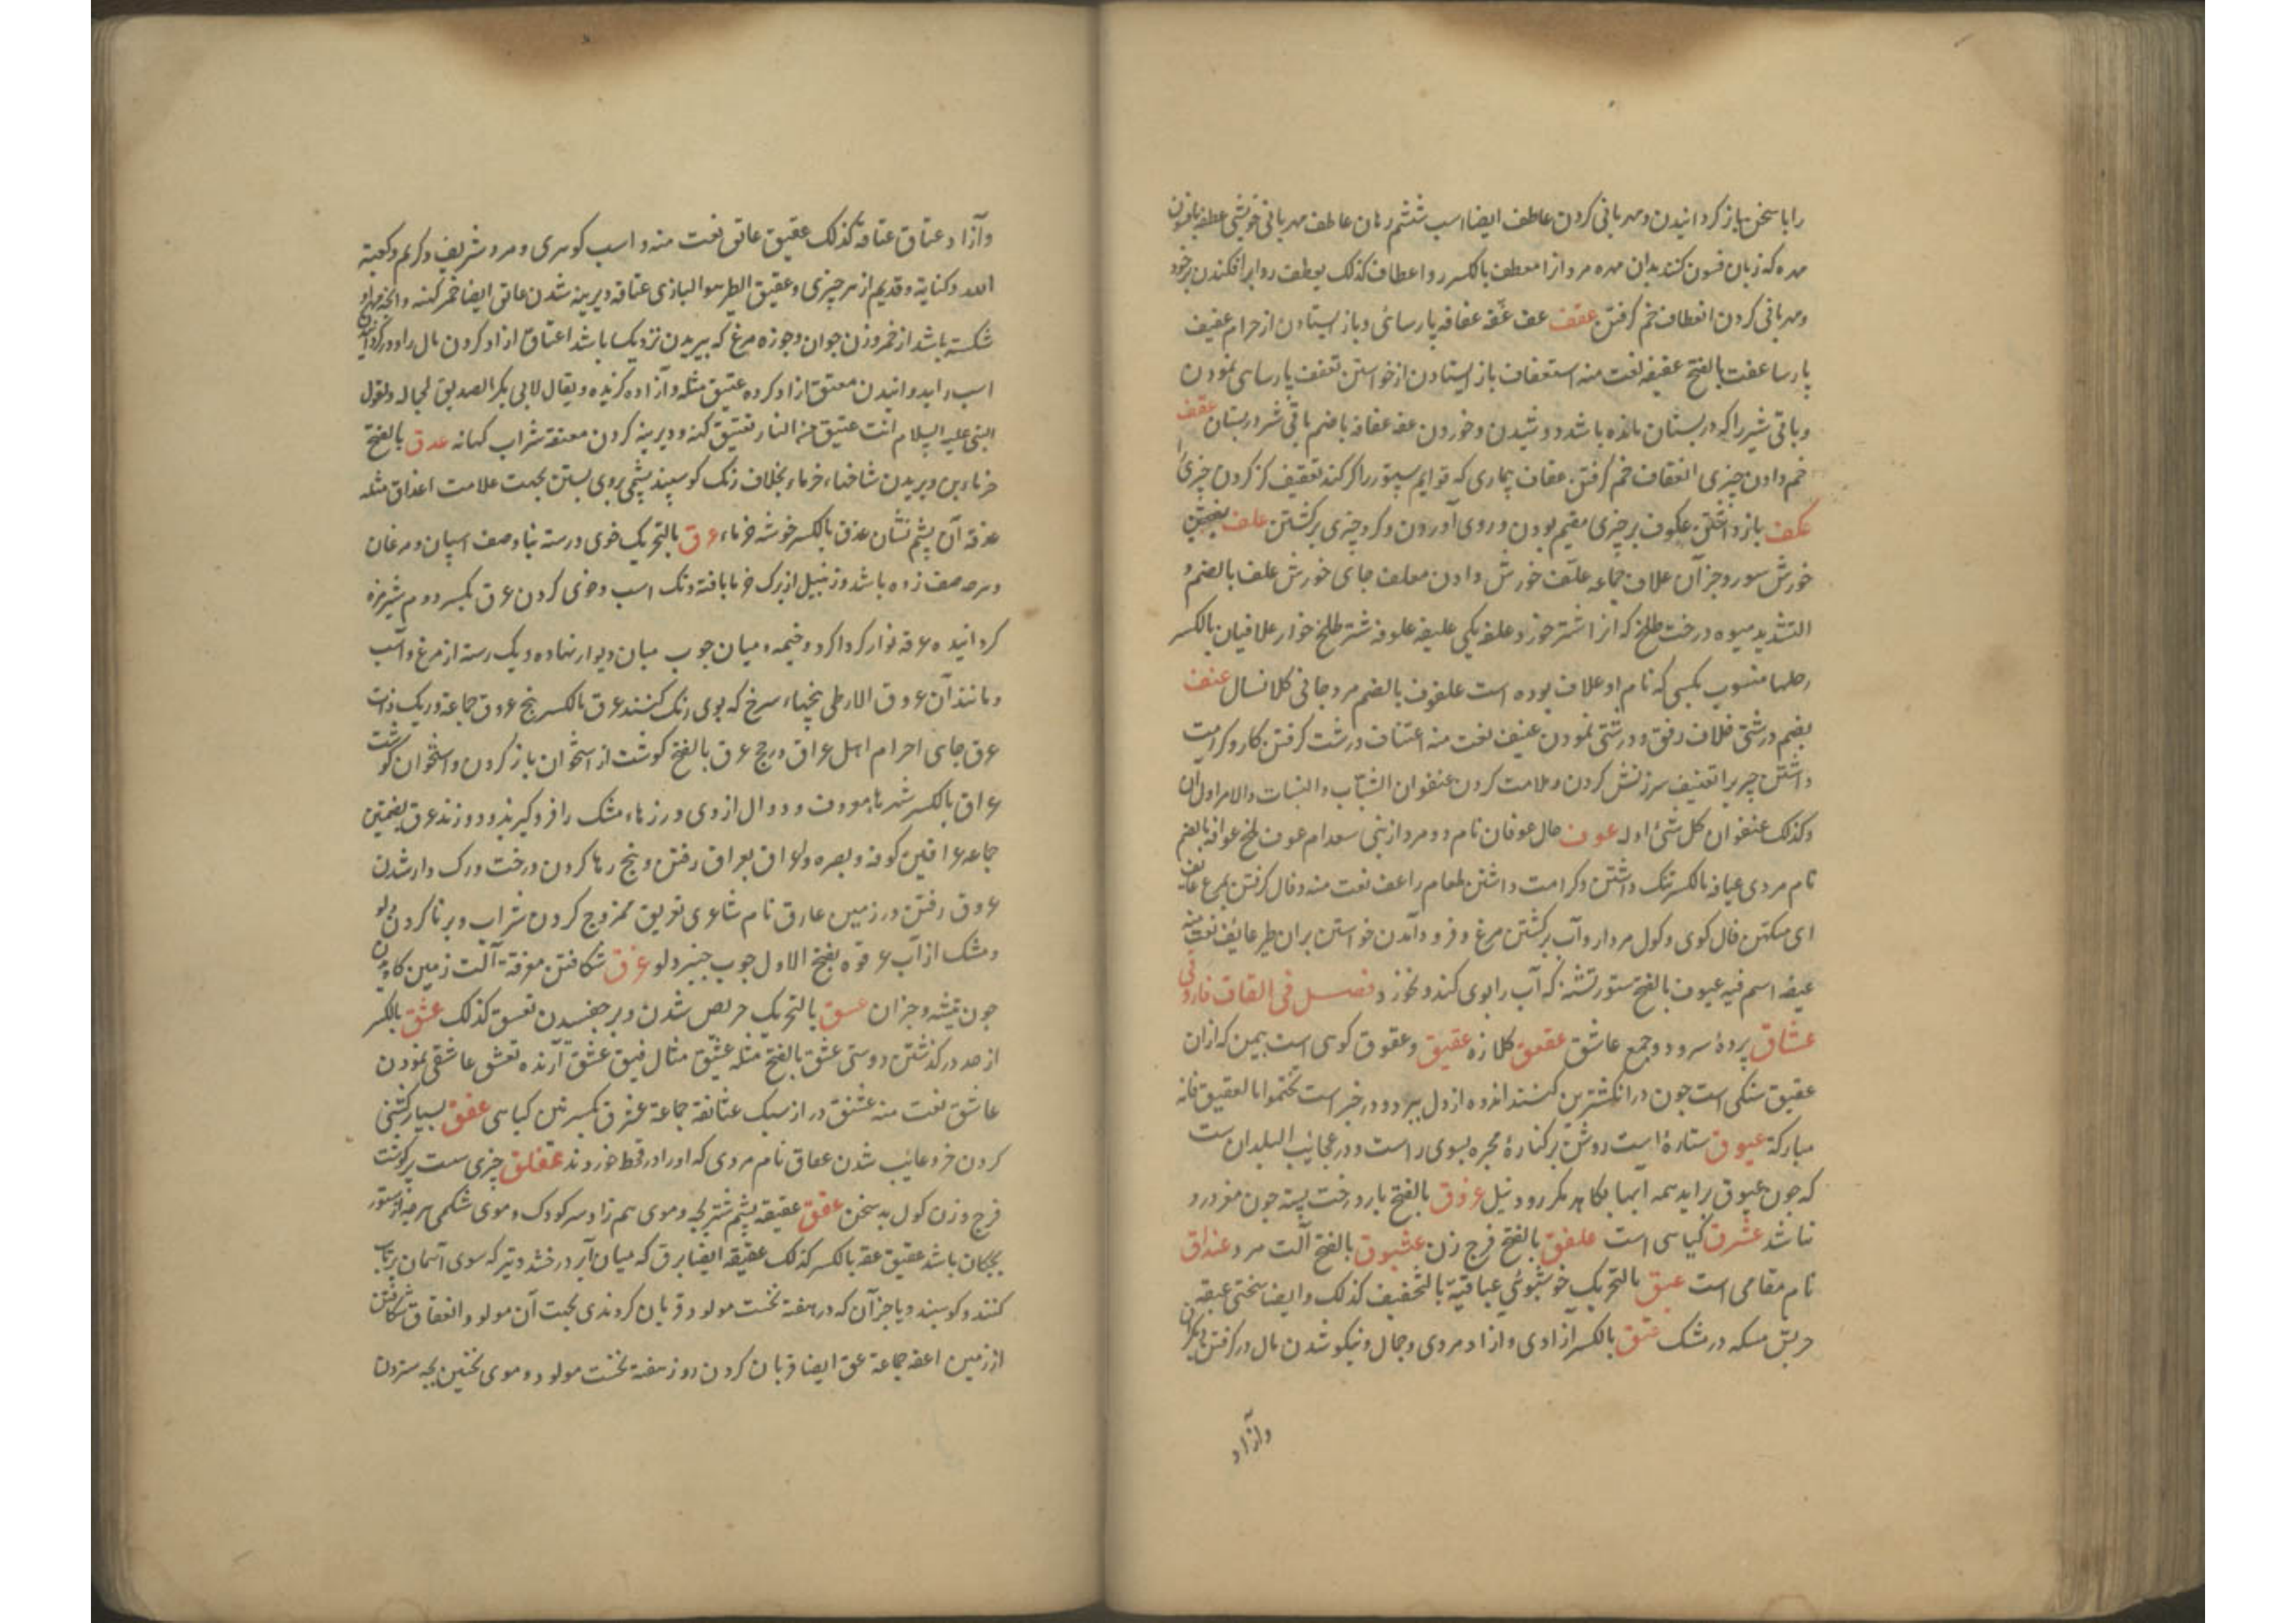 را با سخن باز گردانیدن و مهربانی کردن عاطف ایضا اسب ششم رهان عاطف مهربانی خویشی عطفه بافسون
مهره که زبان فسون کنند بدان مهره مرد ازا معطف بالکسر ردا عطاف کذلک یعطف ردا برافکندن بر خود
و مهربانی کردن انعطاف خم گرفتن عقف عف عفه عفافه پارسائی و باز ایستادن از حرام عفیف
پارسا عفت بالفتح عفیفه نعت منه استعفاف باز ایستادن از خواستن تعفف پارسای نمودن
و باقی شیر را که در پستان مانده باشد دوشیدن و خوردن عفه عفافه باضم باقی شیر در پستان عقف
خم دادن چیزی انعقاف خم گرفتن عقاف بیماری که قوایم ستور را کژ کند تعقیف کژ کردن چیزی
عکف باز داشتن عکوف بر چیزی مقیم بودن و روی آوردن و گرد چیزی برگشتن علف بفتحتین
خورش ستور و جز آن علاف جماعه علف خورش دادن معلف جای خورش علف بالضم و
التشدید میوه درخت طلح که از اشتر خورد علفه یکی علیفه علوفه شتر طلح خوار علافیان بالکسر
رحلها منسوب بکسی که نام او علاف بوده است علفوف بالضم مرد جافی کلانسال عنف
بضم درشتی خلاف رفق و درشتی نمودن عنیف نعت منه اعتناف درشت گرفتن کار و کراهیت
داشتن چیز را تعنیف سرزنش کردن و ملامت کردن عنفوان الشباب و النبات والامر اول آن
وکذلک عنفوان کل شئ اوله عوف حال عوفان نام دو مرد از بنی سعد ام عوف ملخ عوافه بالضم
نام مردی عیافه بالکسر ننگ داشتن و کراهت داشتن طعام را عف نعت منه و فال گرفتن بمرغ عائف
ای متکهن فال گوی و کول مردار و آب برگشتن مرغ و فرود آمدن خواستن بران طیر عایف نعت منه
عیفه اسم فیه عیوف بالفتح ستور تشنه که آب را بوی کند و نخورد فصل فی القاف فاروقی
عشاق پردهٔ سرود و جمع عاشق عقعق کلاژه عقیق و عقوق کوهی است بیمن که ازان
عقیق سنگی است چون در انگشترین کنند اندوه از دل ببرد و در خبر است تختموا بالعقیق فانه
مبارکة عیوق ستارهٔ است روشن بر کنارهٔ مجره بسوی راست و در عجایب البلدان ست
که چون عیوق براید همه آبها بکاهد مگر رود نیل عزوق بالفتح بار درخت پسته چون مغز درو
نباشد عشرق گیاهی است علفق بالفتح فرج زن عشیوق بالفتح آلت مرد عنداق
نام مقامی است عبق بالتحریک خوشبوئی عباقیة بالتخفیف کذلک و ایضا سختی عبقه
خریق مسکه در مشک عتق بالکسر آزادی و آزاد مردی و جمال و نیکو شدن مال در گرفتن
وآزاد
وآزاد عتاق عتاقه کذلک عتیق عاتق نعت منه و اسب گوهری و مرد شریف و کریم و کعبه
الله و کنایه و قدیم از هر چیزی و عتیق الطیر هو البازی عتاقه دیرینه شدن عاتق ایضا خمر کهنه و آنچه مهر او
شکسته باشد از خمر و زن جوان و جوزه مرغ که بپریدن نزدیک باشد اعتاق ازاد کردن مال را و
اسب را بدوانیدن معتق ازاد کرده عتیق مثله و آزاده گزیده و یقال لابی بکر الصدیق لجماله ولقول
النبی علیه السلام انت عتیق من النار تعتیق کهنه و دیرینه کردن معتقه شراب کهانه عدق بالفتح
خرمابن و بریدن شاخهاء خرما و بخلاف رنگ گوسپند پشمی بروی بستن بجهت علامت اعذاق مثله
عذقه آن پشم نشان عذق بالکسر خوشه خرماء عرق بالتحریک خوی و رسته بنا و صف اسپان و مرغان
و هرچه صف زده باشد و زنبیل از برگ خرما بافته و تک اسب و خوی کردن عرق بکسر دوم شیر مزه
گردانیده عرقه نوار گرداگرد و خیمه و میان چوب میان دیوار نهاده و یک رسته از مرغ و اسب
و مانند آن عروق الارطی بیخهاء سرخ که بوی رنگ کنند عرق بالکسر بیخ عروق جماعة و ریگ و ذات
عرق جای احرام اهل عراق در حج عرق بالفتح گوشت از استخوان باز کردن و استخوان گوشت
عراق بالکسر شهرها معروف و دوال از وی درزهاء مشک را فرو گیرند و دوزند عرق بضمتین
جماعه عراقین کوفه و بصره و عراق بعراق رفتن و بیخ رها کردن درخت و رگ وار شدن
عروق رفتن در زمین عارق نام شاعری تعریق ممزوج کردن شراب و پر ناکردن دلو
و مشک از آب عرقوه بفتح الاول چوب چنبر دلو عزق شکافتن معزقة آلت زمین کاویدن
چون تیشه و جز آن عسق بالتحریک حریص شدن و بر چفسیدن تعسق کذلک عشق بالکسر
از حد درگذشتن دوستی عشق بالفتح مثله عشیق مثال فسیق عشق آرنده تعشق عاشقی نمودن
عاشق نعت منه عشنق دراز سبک عشانقة جماعة عشرق بکسرتین گیاهی عفق بسیار کشنی
کردن خر و غایب شدن عفاق نام مردی که او را در قحط خوردند عفلق چیزی سست پرگوشت
فرج و زن گول بد سخن عقق عقیقه پشم شتر بچه و موی هم زاد و سر کودک و موی شکمی هرچه از ستور
بچگان باشد عقیق عقه بالکسر کذلک عقیقه ایضا برق که میان ابر درخشد و تیر که سوی آسمان پرتاب
کنند و گوسپند و یا جز آن که در هفته نخست مولود قربان کردندی بجهت آن مولود و انعقاق شکافتن
از زمین اعقه جماعة عق ایضا قربان کردن روز هفته نخست مولود و موی نخستین بچه ستردن